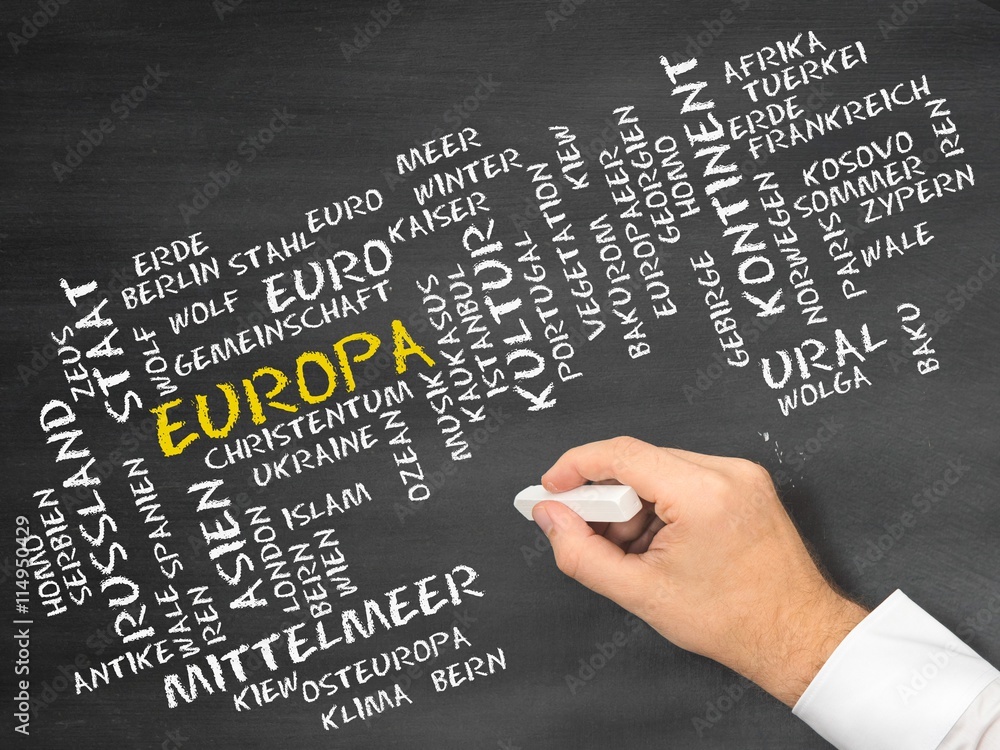 AFRIKA
TUERKEI
ERDE
FRANKREICH
IREN
KONTINENT
KOSOVO
SOMMER
ZYPERN
WALE
PARIS
NORWEGEN
GEBIRGE
URAL
WOLGA
BAKU
HOMO
GEORGIEN
EUROPAEER
BAKUROMA
VEGETATION
KIEW
PORTUGAL
KULTUR
ISTANBUL
KAUKASUS
MUSIK
OZEAN
MEER
WINTER
KAISER
EURO
STAHL
EURO
ERDE
BERLIN
WOLF
GEMEINSCHAFT
EUROPA
CHRISTENTUM
UKRAINE
STAAT
ZEUS
WOLF
RUSSLAND
SERBIEN
HOMO
SPANIEN
WALE
IREN
ASIEN
LONDON
ISLAM
BERN
WIEN
ANTIKE
MITTELMEER
KIEW
OSTEUROPA
BERN
KLIMA
Adobe Stock | #114950429